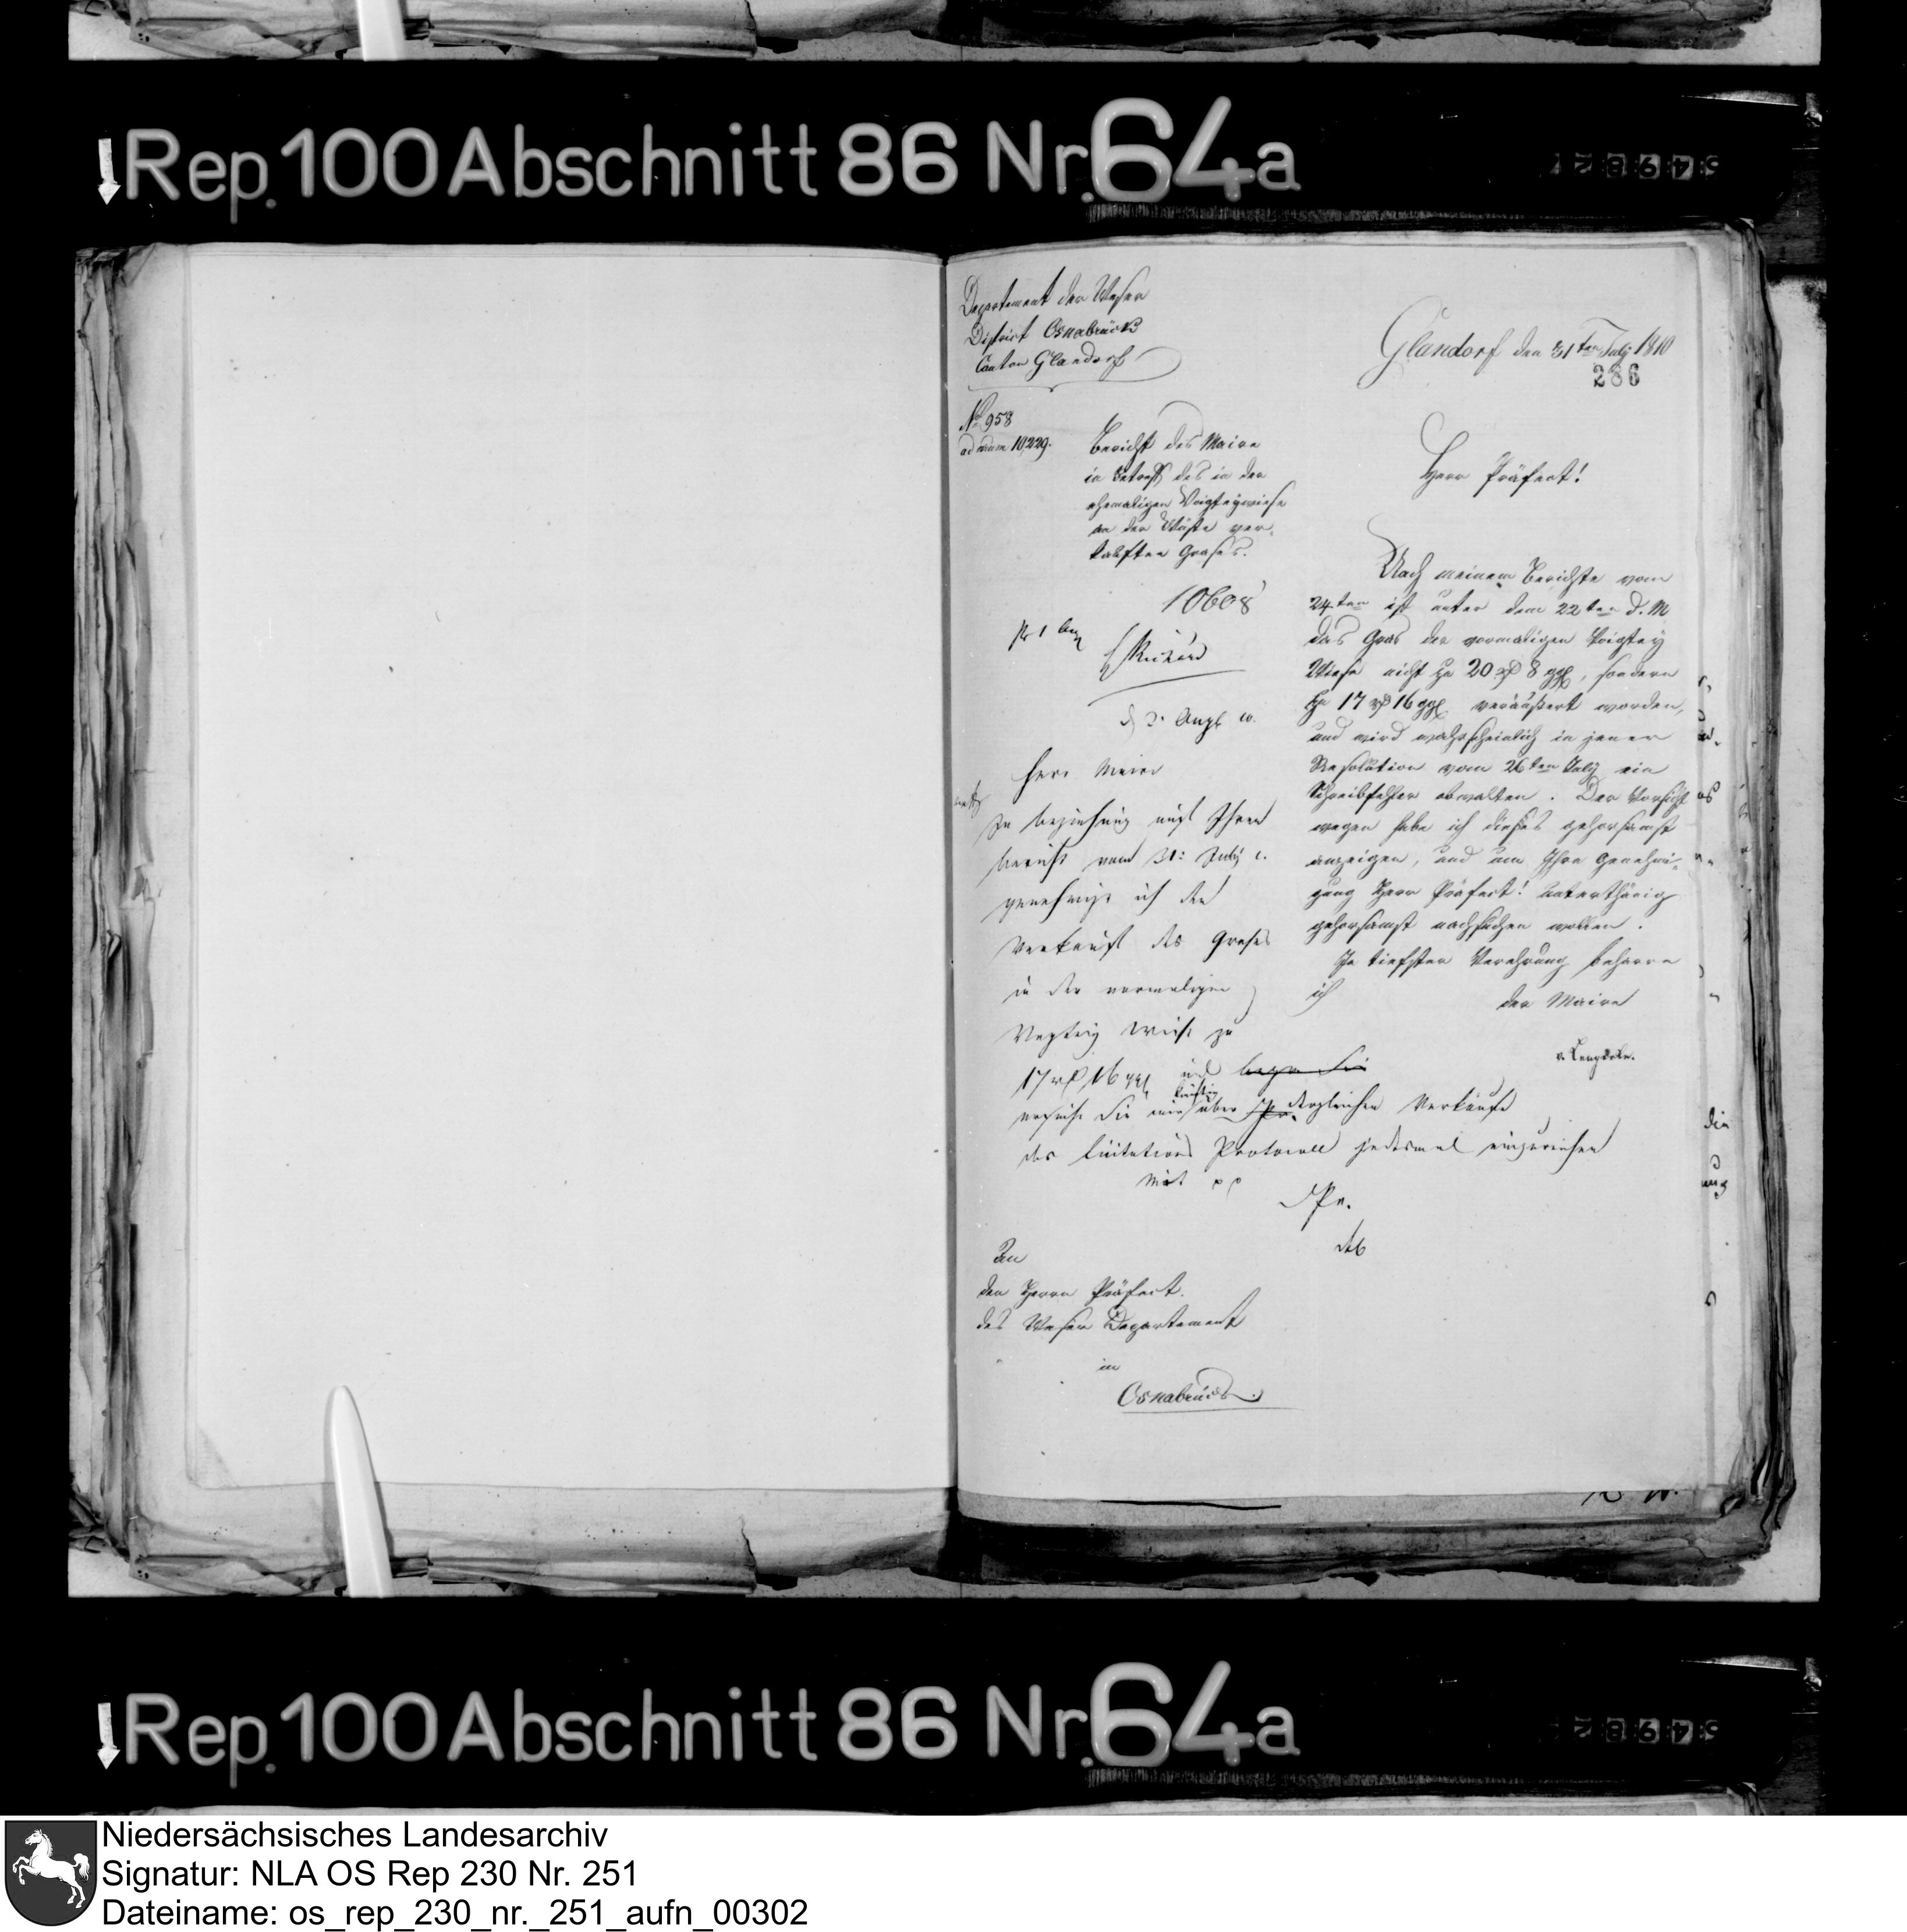 Rep. 100 Abschnitt 86 Nr. 64a
Departement der Weser
District Osnabrück
Canton Glandorf
Glandorf den 31ten July 1810
286
No 958
ad num 10,229.
Bericht des Maire
in Betreff des in der
ehemaligen Voigteywiese
an der Wüste ver-
kauften Grases.
Herr Präfect!
10608
pr 1 Aug
Nach meinem Berichte vom
24ten ist unter dem 22ten d. M
das Gras der vormaligen Voigtey
Wiese nicht zu 20 rß 8 ggl, sondern
zu 17 rß 16 ggl veräußert worden,
und wird wahrscheinlich in jener
Resolution vom 26ten July ein
Schreibfehler obwalten. Der Vorsicht
wegen habe ich dieses gehorsamst
anzeigen, und um Ihre Genehmi-
gung Herr Präfect! unterthänig
gehorsamst nachsuchen wollen.
In tiefster Verehrung beharre
ich
der Maire
2. Augt 10.
Herr Maire
In Beziehung auf Ihren
Bericht vom 31: July c.
genehmige ich den
Verkauf des Grases
in der vormaligen
Vogtey Wiese zu
17 rß 16 ggl und
ersuche Sie mir künftig über dergleichen Verkäufe
das Licitations Protocoll jedesmal einzureichen
Mit pp
DPr.
An
den Herrn Präfect.
des Weser Departement
in
Osnabrück.
Rep. 100 Abschnitt 86 Nr. 64a
Niedersächsisches Landesarchiv
Signatur: NLA OS Rep 230 Nr. 251
Dateiname: os_rep_230_nr._251_aufn_00302